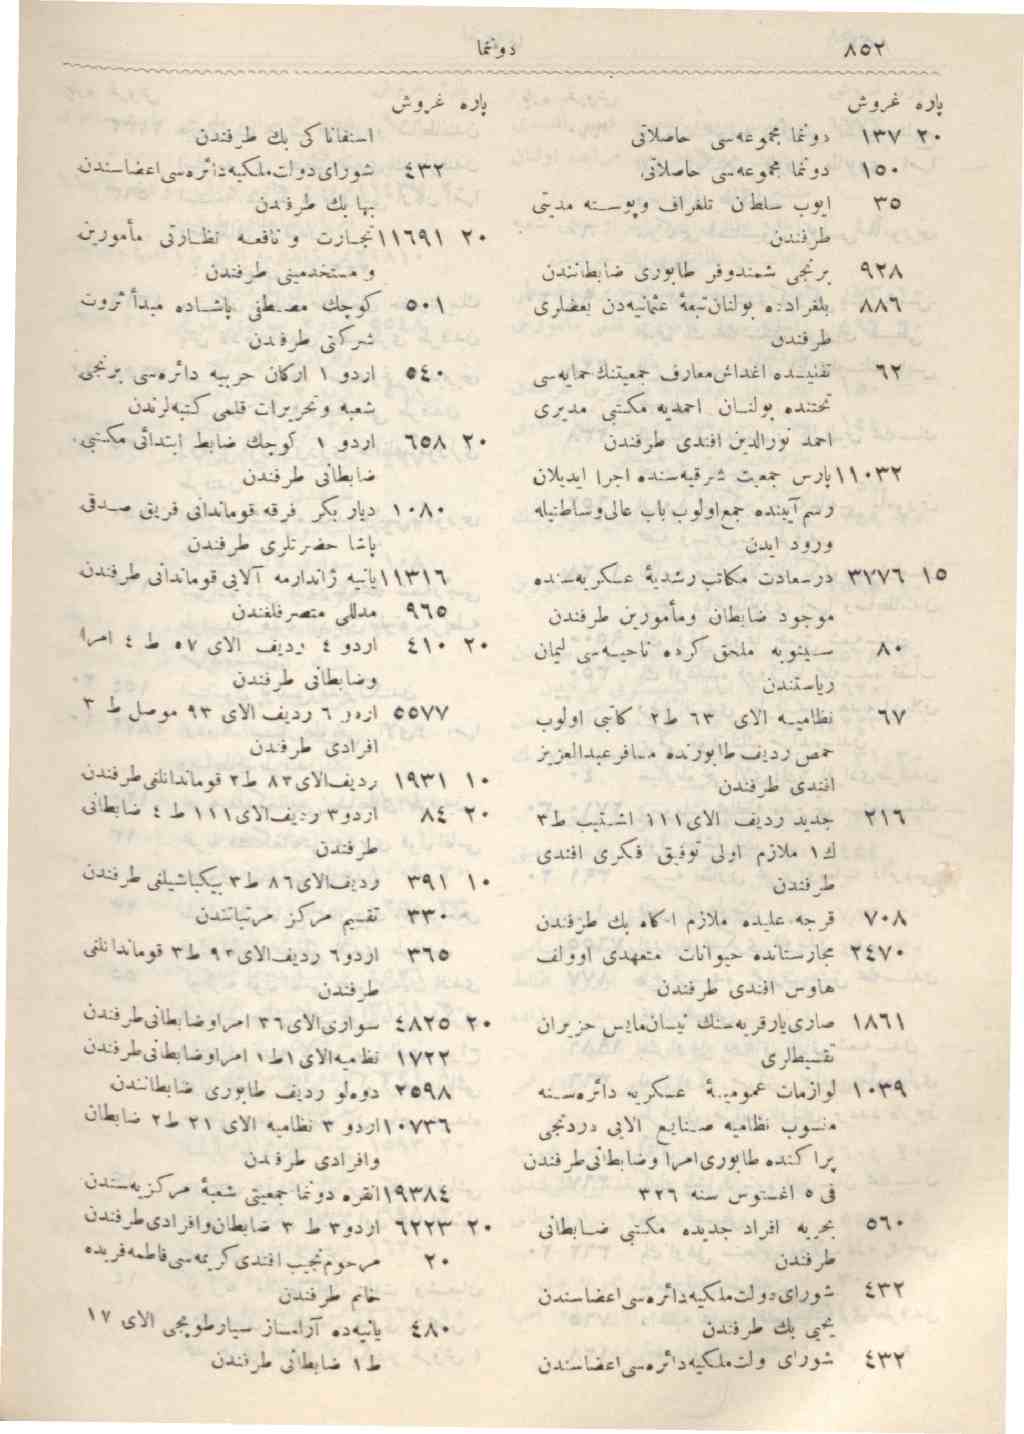 ٨٥٢ دونما
پاره غروش
٢٠ ١٣٧ دونما مجموعه‌سی حاصلاتی
١٥٠ دونما مجموعه‌سی حاصلاتی
٣٥ ایوب سلطان تلغراف وپوسته مدیتی
طرفندن
٩٢٨ برنجی شمندوفر طابوری ضابطانندن
٨٨٦ بلغرادده بولنان تبعهٔ عثمانیه‌دن بعضلری
طرفندن
٦٢ تفنیده اغداش معارف جمعیتنك حمایه‌سی
تحتنده بولنان احمدیه مكتبی مدیری
احمد نورالدین افندی طرفندن
١١٠٣٢ پارس جمعیت شرقیه‌سنده اجرا ایدیلان
رسم آییننده جمع اولوب باب عالی وساطتیله
ورود ایدن
١٥ ٣٧٧٦ درسعادت مكاتب رشدیهٔ عسكریه‌سنده
موجود ضابطان ومأمورین طرفندن
٨٠ سینوبه ملحق كرده ناحیه‌سی لیمان
ریاستندن
٦٧ نظامیه الای ٦٣ ط٢ كاتبی اولوب
حمص ردیف طابورنده مسافر عبدالعزیز
افندی طرفندن
٢١٦ جدید ردیف الای ١١١ اشتیب ط٣
ك١ ملازم اولی توفیق فكری افندی
طرفندن
٧٠٨ قرجه علیده ملازم اكاه بك طرفندن
٢٤٧٠ مجارستانده حیوانات متعهدی اوولف
هاوس افندی طرفندن
١٨٦١ صاری‌یار قریه‌سنك نیسان مایس حزیران
تقسیطلری
١٠٣٩ لوازمات عمومیهٔ عسكریه دائره‌سنه
منسوب نظامیه صنایع الایی دردنجی
پراكنده طابوری امرا وضابطانی طرفندن
فی ٥ اغستوس سنه ٣٢٦
٥٦٠ بحریه افراد جدیده مكتبی ضابطانی
طرفندن
٤٣٢ شورای دولت ملكیه دائره‌سی اعضاسندن
یحیی بك طرفندن
٤٣٢ شورای ولت ملكیه دائره‌سی اعضاسندن
پاره غروش
استفاناكی بك طرفندن
٤٣٢ شورای دولت ملكیه دائره‌سی اعضاسندن
بها بك طرفندن
٢٠ ١١٦٩١ تجارت و نافعه نظارتی مأمورین
و مستخدمینی طرفندن
٥٠١ كوچك مصطفی پاشاده مبدأ ثروت
شركتی طرفندن
٥٤٠ اردو ١ اركان حربیه دائره‌سی برنجی
شعبه وتحریرات قلمی كتبه‌لرندن
٢٠ ٦٥٨ اردو ١ كوچك ضابط ابتدائی مكتبی
ضابطانی طرفندن
١٠٨٠ دیار بكر فرقه قوماندانی فریق صدقی
پاشا حضرتلری طرفندن
١١٣١٦ یانیه ژاندارمه آلایی قوماندانی طرفندن
٩٦٥ مدللی متصرفلغندن
٢٠ ٤١٠ اردو ٤ ردیف الای ٥٧ ط ٤ امرا
وضابطانی طرفندن
٥٥٧٧ اردو ٦ ردیف الای ٩٣ موصل ط ٣
افرادی طرفندن
١٠ ١٩٣١ ردیف الای ٨٣ ط٢ قوماندانلغی طرفندن
٢٠ ٨٤ اردو٣ ردیف الای ١١١ ط ٤ ضابطانی
طرفندن
١٠ ٣٩١ ردیف الای ٨٦ ط٣ بیكباشیلغی طرفندن
٣٣٠ تقسیم مركز مرتباتندن
٣٦٥ اردو٦ ردیف الای ٩٣ ط٣ قوماندانلغی
طرفندن
٢٠ ٤٨٢٥ سواری الای ٣٦ امرا وضابطانی طرفندن
١٧٢٢ نظامیه الای ١ ط١ امرا وضابطانی طرفندن
٢٥٩٨ دوه‌لو ردیف طابوری ضابطانندن
١٠٧٣٦ اردو ٣ نظامیه الای ٢١ ط٢ ضابطان
وافرادی طرفندن
١٩٣٨٤ انقره دونما جمعیتی شعبهٔ مركزیه‌سندن
٢٠ ٦٢٢٣ اردو٣ ط ٣ ضابطان وافرادی طرفندن
٢٠ مرحوم نجیب افندی كریمه‌سی فاطمه فریده
خانم طرفندن
٤٨٠ یانیه‌ده آرامساز سیار طوپجی الای ١٧
ط١ ضابطانی طرفندن